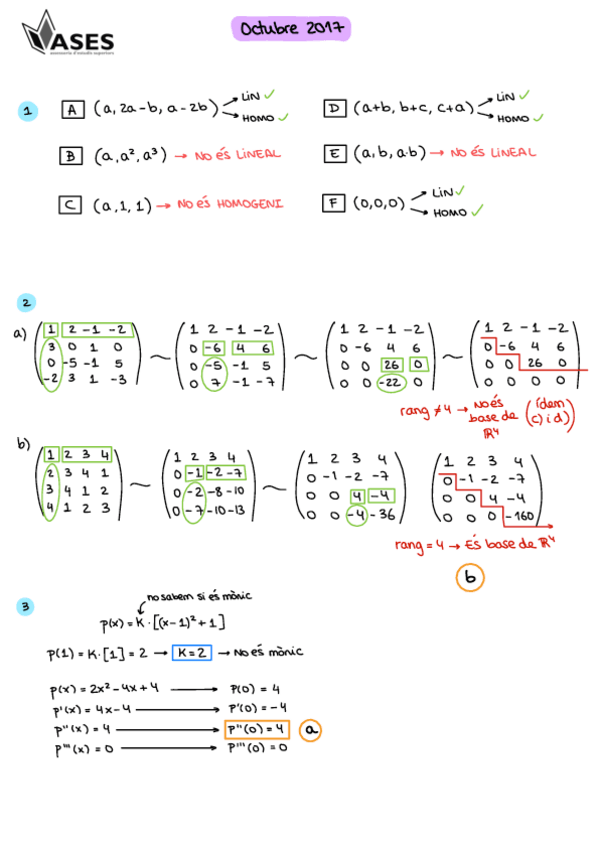 ASES
assessoria d'estudis superiors
Octubre 2017
1
A (a, 2a-b, a-2b) → LIN ✓ → HOMO ✓
D (a+b, b+c, c+a) → LIN ✓ → HOMO ✓
B (a, a², a³) → NO ÉS LINEAL
E (a, b, a·b) → NO ÉS LINEAL
C (a, 1, 1) → NO ÉS HOMOGENI
F (0,0,0) → LIN ✓ → HOMO ✓
2
a)
1 2 -1 -2
3 0 1 0
0 -5 -1 5
-2 3 1 -3
~
1 2 -1 -2
0 -6 4 6
0 -5 -1 5
0 7 -1 -7
~
1 2 -1 -2
0 -6 4 6
0 0 26 0
0 0 -22 0
~
1 2 -1 -2
0 -6 4 6
0 0 26 0
0 0 0 0
rang ≠ 4 → NO ÉS base de ℝ⁴ (ídem c) i d))
b)
1 2 3 4
2 3 4 1
3 4 1 2
4 1 2 3
~
1 2 3 4
0 -1 -2 -7
0 -2 -8 -10
0 -7 -10 -13
~
1 2 3 4
0 -1 -2 -7
0 0 4 -4
0 0 -4 -36
1 2 3 4
0 -1 -2 -7
0 0 4 -4
0 0 0 -160
rang = 4 → ÉS base de ℝ⁴
b
3
no sabem si és mònic
p(x) = K · [(x-1)² + 1]
p(1) = K · [1] = 2 → K = 2 → NO ÉS mònic
p(x) = 2x² - 4x + 4 → p(0) = 4
p'(x) = 4x - 4 → p'(0) = -4
p''(x) = 4 → p''(0) = 4 a
p'''(x) = 0 → p'''(0) = 0